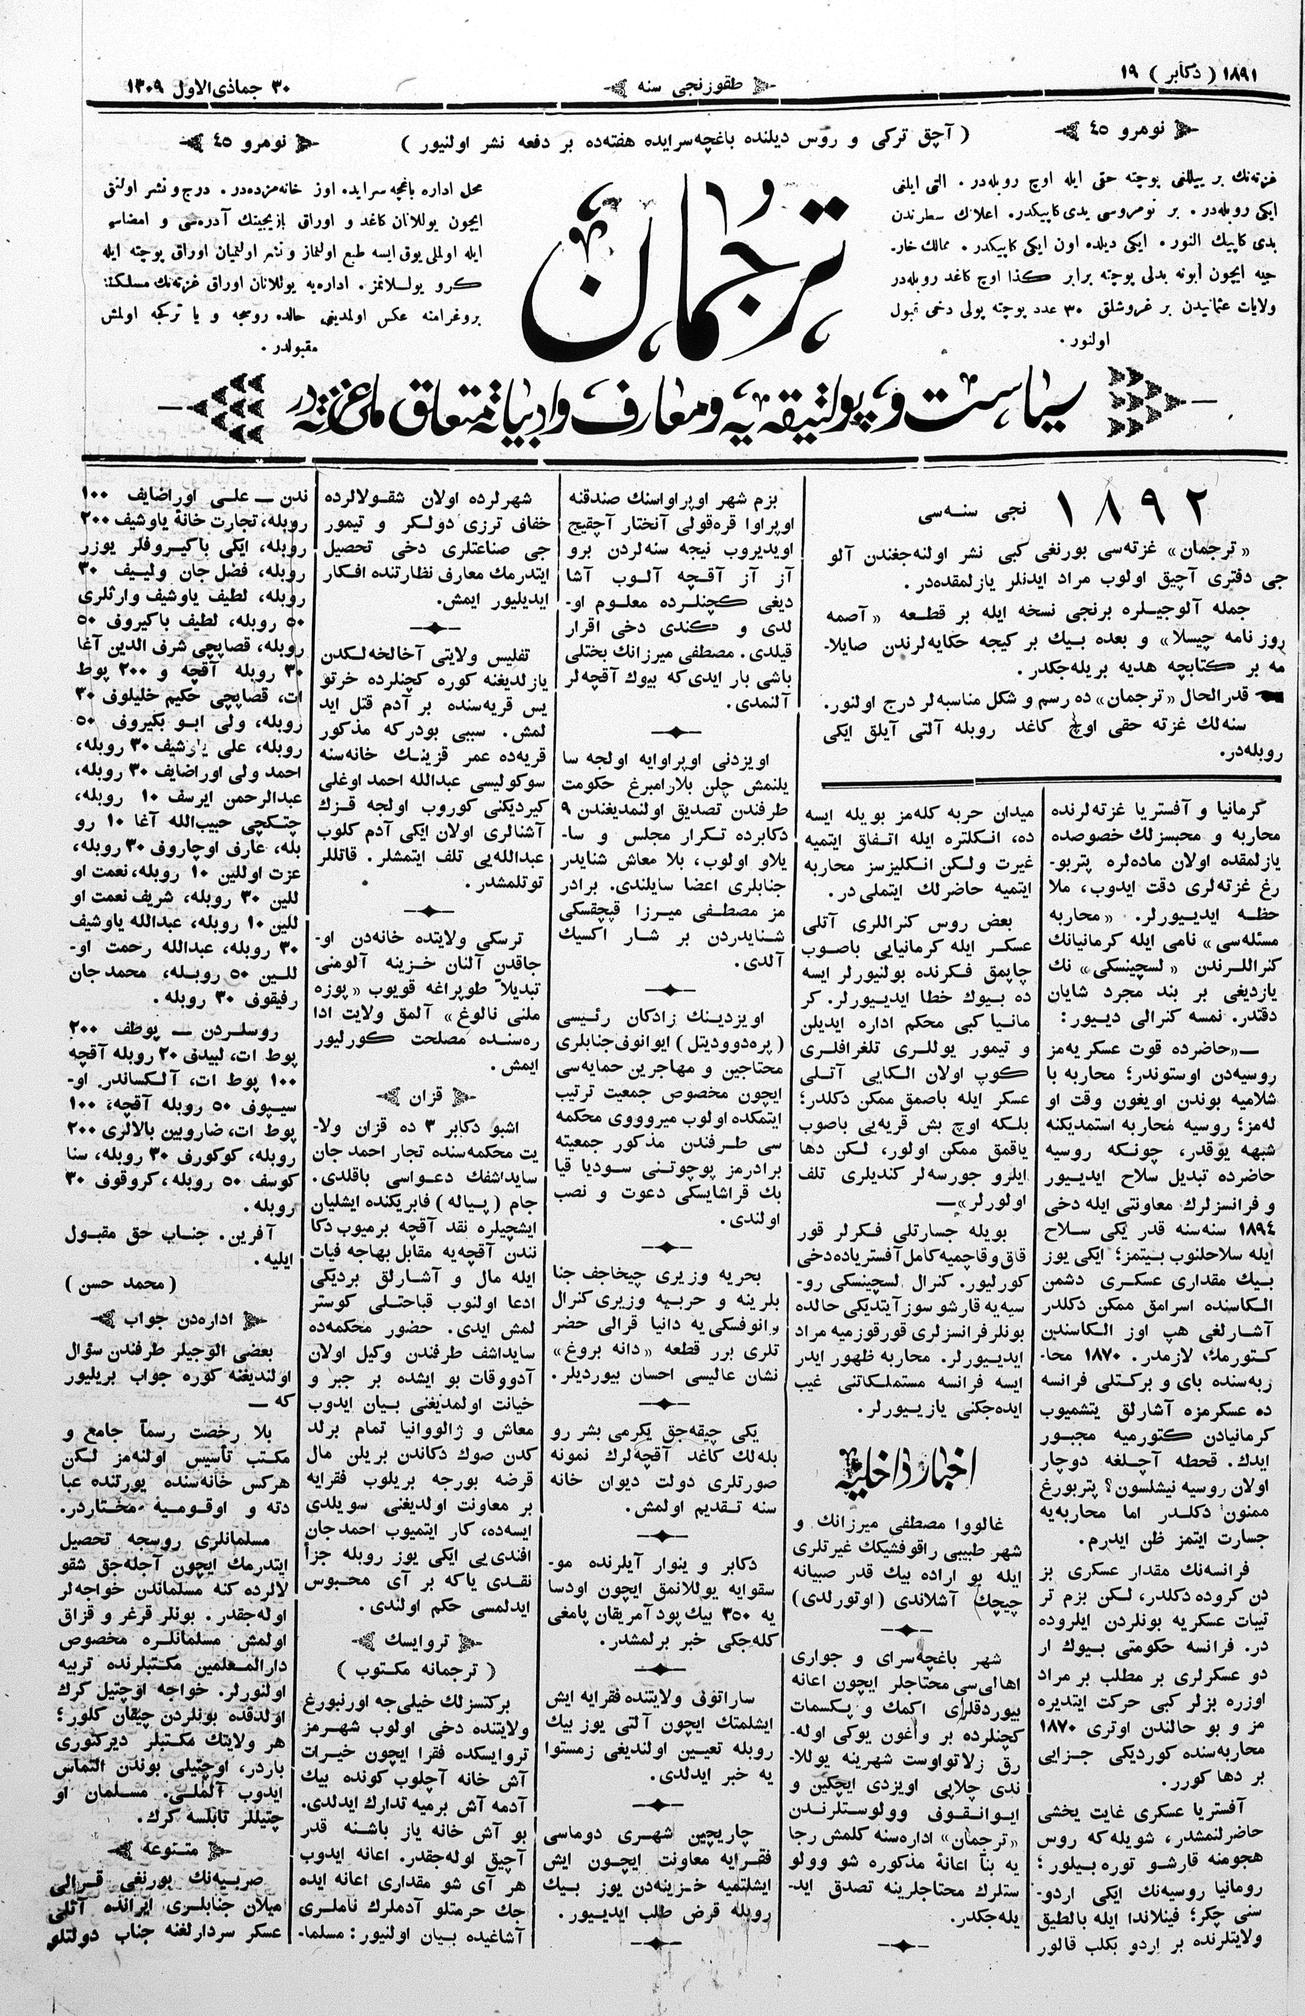 ١٨٩١ ( دكابر ) ١٩
طقوزنجى سنه
٣٠ جماذى الاول ١٣٠٩
نومرو ٤٥
( آچق تركى و روس ديلنده باغچه سرايده هفته ده بر دفعه نشر اولنيور )
نومرو ٤٥
غزته نك بر ييللغى پوچته حقى ايله اوچ روبله در . التى ايلغى
ايكى روبله در . بر نومروسى يدى كاپيكدر . اعلانك سطرندن
يدى كاپيك النور . ايكى ديلده اون ايكى كاپيكدر . ممالك خار-
جيه ايچون أبونه بدلى پوچته برابر كذا اوچ كاغد روبله در
ولايات عثمانيدن بر غروشلق ٣٠ عدد پوچته پولى دخى قبول
اولنور .
ترجمان
محل اداره باغچه سرايده . اوز خانه مزده در . درج و نشر اولنق
ايچون يوللانان كاغد و اوراق يازيجينك آدره سى و امضاسى
ايله اولملى يوق ايسه طبع اولنماز و نشر اولنميان اوراق پوچته ايله
كرو يوللانمز . اداره يه يوللانان اوراق غزته نك مسلكنه
پروغرامنه عكس اولمديغى حالده روسجه و يا تركجه اولمش
مقبولدر .
سياست و پولتيقه يه و معارف و ادبياته متعلق ملى غزته در
١٨٩٢ نجى سنه سى
«ترجمان» غزته سى بورنغى كبى نشر اولنه جغندن آلو
جى دفترى آچيق اولوب مراد ايدنلر يازلمقده در .
جمله آلوجيلره برنجى نسخه ايله بر قطعه «آصمه
روز نامه چيسلا» و بعده بيك بر كيجه حكايه لرندن صايلا-
مه بر كتابچه هديه بريله جكدر .
قدر الحال «ترجمان» ده رسم و شكل مناسبه لر درج اولنور .
سنه لك غزته حقى اوچ كاغد روبله آلتى آيلق ايكى
روبله در .
گرمانيا و آفستريا غزته لرنده
محاربه و محبسزلك خصوصده
يازلمقده اولان ماده لره پتربو-
رغ غزته لرى دقت ايدوب، ملا
حظه ايديورلر . «محاربه
مسئله سى» نامى ايله كرمانيانك
كنراللرندن «لسچينسكى» نك
يازديغى بر بند مجرد شايان
دقتدر . نمسه كنرالى ديور :
—«حاضرده قوت عسكريه مز
روسيه دن اوستوندر ؛ محاربه با
شلاميه بوندن اويغون وقت او
له مز ؛ روسيه محاربه استمديكنه
شبهه يوقدر، چونكه روسيه
حاضرده تبديل سلاح ايديور
و فرانسزلرك معاونتى ايله دخى
١٨٩٤ سنه سنه قدر يكى سلاح
ايله سلاحلنوب بيتمز ؛ ايكى يوز
بيك مقدارى عسكرى دشمن
الكاسنده اسرامق ممكن دكلدر
آشارلغى هپ اوز الكاسندن
كتورمك لازمدر . ١٨٧٠ محا-
ربه سنده باى و بركتلى فرانسه
ده عسكرمزه آشارلق يتشميوب
كرمانيادن كتورميه مجبور
ايدك . قحطه آچلغه دوچار
اولان روسيه نيشلسون ؟ پتربورغ
ممنون دكلدر اما محاربه يه
جسارت ايتمز ظن ايدرم .
فرانسه نك مقدار عسكرى بز
دن كروده دكلدر، لكن بزم تر
تيبات عسكريه بونلردن ايلروده
در . فرانسه حكومتى بيوك ار
دو عسكرلرى بر مطلب بر مراد
اوزره بزلر كبى حركت ايتديره
مز و بو حالندن اوترى ١٨٧٠
محاربه سنده كورديكى جزايى
بر دها كورر .
آفستريا عسكرى غايت يخشى
حاضرلنمشدر، شويله كه روس
هجومنه قارشو توره بيلور ؛
رومانيا روسيه نك ايكى اردو-
سنى چكر ؛ فينلاندا ايله بالطيق
ولايتلرنده بر اردو بكلب قالور
ميدان حربه كله مز بويله ايسه
ده، انكلتره ايله اتفاق ايتميه
غيرت ولكن انكليزسز محاربه
ايتميه حاضرلك ايتملى در .
بعض روس كنراللرى آتلى
عسكر ايله كرمانيايى باصوب
چاپمق فكرنده بولنيورلر ايسه
ده بيوك خطا ايديورلر . كر
مانيا كبى محكم اداره ايديلن
و تيمور يوللرى تلغرافلرى
كوپ اولان الكايى آتلى
عسكر ايله باصمق ممكن دكلدر ؛
بلكه اوچ بش قريه يى باصوب
ياقمق ممكن اولور، لكن دها
ايلرو جورسه لر كنديلرى تلف
اولورلر»—
بويله جسارتلى فكرلر قور
قاق و قاچميه كامل آفسترياده دخى
كورليور . كنرال لسچينسكى رو-
سيه يه قارشو سوز آيتديكى حالده
بونلر فرانسزلرى قورقوزميه مراد
ايديورلر . محاربه ظهور ايدر
ايسه فرانسه مستملكاتنى غيب
ايده جكنى يازييورلر .
اخبار داخليه
غالووا مصطفى ميرزانك و
شهر طبيبى راقوفشيكك غيرتلرى
ايله بو اراده بيك قدر صبيانه
چيچك آشلاندى (اوتورلدى)
شهر باغچه سراى و جوارى
اهالى سى محتاجلر ايچون اعانه
بيوردقلرى اكمك و پكسمات
كچنلرده بر واغون يوكى اوله-
رق زلاتواوست شهرينه يوللا-
ندى چلاپى اويزدى ايچكين و
ايوانقوف وولوستلرندن
«ترجمان» اداره سنه كلمش رجا
يه بناً اعانهٔ مذكوره شو وولو
ستلرك محتاجلرينه تصدق ايد-
يله جكدر .
بزم شهر اوپراواسنك صندقنه
اوپراوا قره قولى آنختار آچقيچ
اويديروب نيجه سنه لردن برو
آز آز آقچه آلوب آشا
ديغى كچنلرده معلوم او-
لدى و كندى دخى اقرار
قيلدى . مصطفى ميرزانك بختلى
باشى بار ايدى كه بيوك آقچه لر
آلنمدى .
اويزدنى اوپراوايه اولجه سا
يلنمش چلن بلارامبرغ حكومت
طرفندن تصديق اولنمديغندن ٩
دكابرده تكرار مجلس و سا-
يلاو اولوب، بلا معاش شنايدر
جنابلرى اعضا سايلندى . برادر
مز مصطفى ميرزا قپچقسكى
شنايدردن بر شار اكسيك
آلدى .
اويزدينك زادكان رئيسى
(پره دووديتل) ايوانوف جنابلرى
محتاجين و مهاجرين حمايه سى
ايچون مخصوص جمعيت ترتيب
ايتمكده اولوب ميروووى محكمه
سى طرفندن مذكور جمعيته
برادرمز پوچوتنى سوديا قيا
بك قراشايسكى دعوت و نصب
اولندى .
بحريه وزيرى چيخاجف جنا
بلرينه و حربيه وزيرى كنرال
وانوفسكى يه دانيا قرالى حضر
تلرى برر قطعه «دانه بروغ»
نشان عاليسى احسان بيورديلر .
يكى چيقه جق يكرمى بشر رو
بله لك كاغد آقچه لرك نمونه
صورتلرى دولت ديوان خانه
سنه تقديم اولمش .
دكابر و ينوار آيلرنده مو-
سقوايه يوللانمق ايچون اودسا
يه ٣٥٠ بيك پود آمريقان پامغى
كله جكى خبر برلمشدر .
ساراتوف ولايتنده فقرايه ايش
ايشلمتك ايچون آلتى يوز بيك
روبله تعيين اولنديغى زمستوا
يه خبر ايدلدى .
چاريچين شهرى دوماسى
فقرايه معاونت ايچون ايش
ايشلتميه خزينه دن يوز بيك
روبله قرض طلب ايديور .
شهرلرده اولان شقولالرده
خفاف ترزى دولكر و تيمور
جى صناعتلرى دخى تحصيل
ايتدرمك معارف نظارتنده افكار
ايديليور ايمش .
تفليس ولايتى آخالخه لكدن
يازلديغنه كوره كچنلرده خرتو
يس قريه سنده بر آدم قتل ايد
لمش . سببى بودر كه مذكور
قريه ده عمر قزينك خانه سنه
سوكوليسى عبدالله احمد اوغلى
كيرديكنى كوروب اولجه قزك
آشنالرى اولان ايكى آدم كلوب
عبدالله يى تلف ايتمشلر . قاتللر
توتلمشدر .
ترسكى ولايتده خانه دن او-
جاقدن آلنان خزينه آلومنى
تبديلاً طوپراغه قويوب «پوزه
ملنى نالوغ» آلمق ولايت ادا
ره سنده مصلحت كورليور
ايمش .
قزان
اشبو دكابر ٣ ده قزان ولا-
يت محكمه سنده تجار احمد جان
سايداشفك دعواسى باقلدى .
جام (پياله) فابريكنده ايشليان
ايشچيلره نقد آقچه برميوب دكا
نندن آقچه يه مقابل بهاجه فيات
ايله مال و آشارلق برديكى
ادعا اولنوب قباحتلى كوستر
لمش ايدى . حضور محكمه ده
سايداشف طرفندن وكيل اولان
آدووقات بو ايشده بر جبر و
خيانت اولمديغنى بيان ايدوب
معاش و ژالووانيا تمام برلد
كدن صوك دكاندن بريلن مال
قرضه بورجه بريلوب فقرايه
بر معاونت اولديغنى سويلدى
ايسه ده، كار ايتميوب احمد جان
افندى يى ايكى يوز روبله جزأ
نقدى ياكه بر آى محبوس
ايدلمسى حكم اولندى .
ترويسك
( ترجمانه مكتوب )
بركتسزلك خيلى جه اورنبورغ
ولايتنده دخى اولوب شهرمز
ترويسكده فقرا ايچون خيرات
آش خانه آچلوب كونده بيك
آدمه آش برميه تدارك ايدلدى .
بو آش خانه ياز باشنه قدر
آچيق اوله جقدر . اعانه ايدوب
هر آى شو مقدارى اعانه ايده
جك حرمتلو آدملرك ناملرى
آشاغيده بيان اولنيور : مسلما-
ندن — على اوراضايف ١٠٠
روبله، تجارت خانهٔ ياوشيف ٢٠٠
روبله، ايكى باكيروفلر يوزر
روبله، فضل جان وليف ٣٠
روبله، لطيف ياوشيف وارثلرى
٥٠ روبله، لطيف باكيروف ٥٠
روبله، قصاپچى شرف الدين آغا
٣٠ روبله آقچه و ٢٠٠ پوط
ات، قصاپچى حكيم خليلوف ٣٠
روبله، ولى ابو بكيروف ٥٠
روبله، على ياوشيف ٣٠ روبله،
احمد ولى اوراضايف ٣٠ روبله،
عبدالرحمن ايرسف ١٠ روبله،
چتكچى حبيب الله آغا ١٠ رو
بله، عارف اوچاروف ٣٠ روبله،
عزت اوللين ١٠ روبله، نعمت او
للين ٣٠ روبله، شريف نعمت او
للين ١٠ روبله، عبدالله ياوشيف
٣٠ روبله، عبدالله رحمت او-
للين ٥٠ روبله، محمد جان
رفيقوف ٣٠ روبله .
روسلردن — پوطف ٢٠٠
پوط ات، لبيدف ٢٠ روبله آقچه
١٠٠ پوط ات، آلكساندر او-
سيپوف ٥٠ روبله آقچه، ١٠٠
پوط ات، ضاروبين بالالرى ٢٠٠
روبله، كوكورف ٣٠ روبله، سنا
كوسف ٥٠ روبله، كروقوف ٣٠
روبله .
آفرين . جناب حق مقبول
ايليه .
( محمد حسن )
اداره دن جواب
بعضى الوجيلر طرفندن سؤال
اولنديغنه كوره جواب بريليور
كه —
بلا رخصت رسماً جامع و
مكتب تأسيس اولنه مز لكن
هركس خانه سنده يورتنده عبا
دته و اوقوميه مختاردر .
مسلمانلرى روسجه تحصيل
ايتدرمك ايچون آچله جق شقو
لالرده كنه مسلماندن خواجه لر
اوله جقدر . بونلر قرغز و قزاق
اولمش مسلمانلره مخصوص
دارالمعلمين مكتبلرنده تربيه
اولنورلر . خواجه اوچتيل كرك
اولدقده بونلردن چيقان كلور ؛
هر ولايتك مكتبلر ديركتورى
باردر، اوچتيلى بوندن التماس
ايدوب آلملى . مسلمان او
چتيللر تابلسه كرك .
متنوعه
صربيه نك بورنغى قرالى
ميلان جنابلرى ايرانده آتلى
عسكر سردارلغنه جناب دولتلو